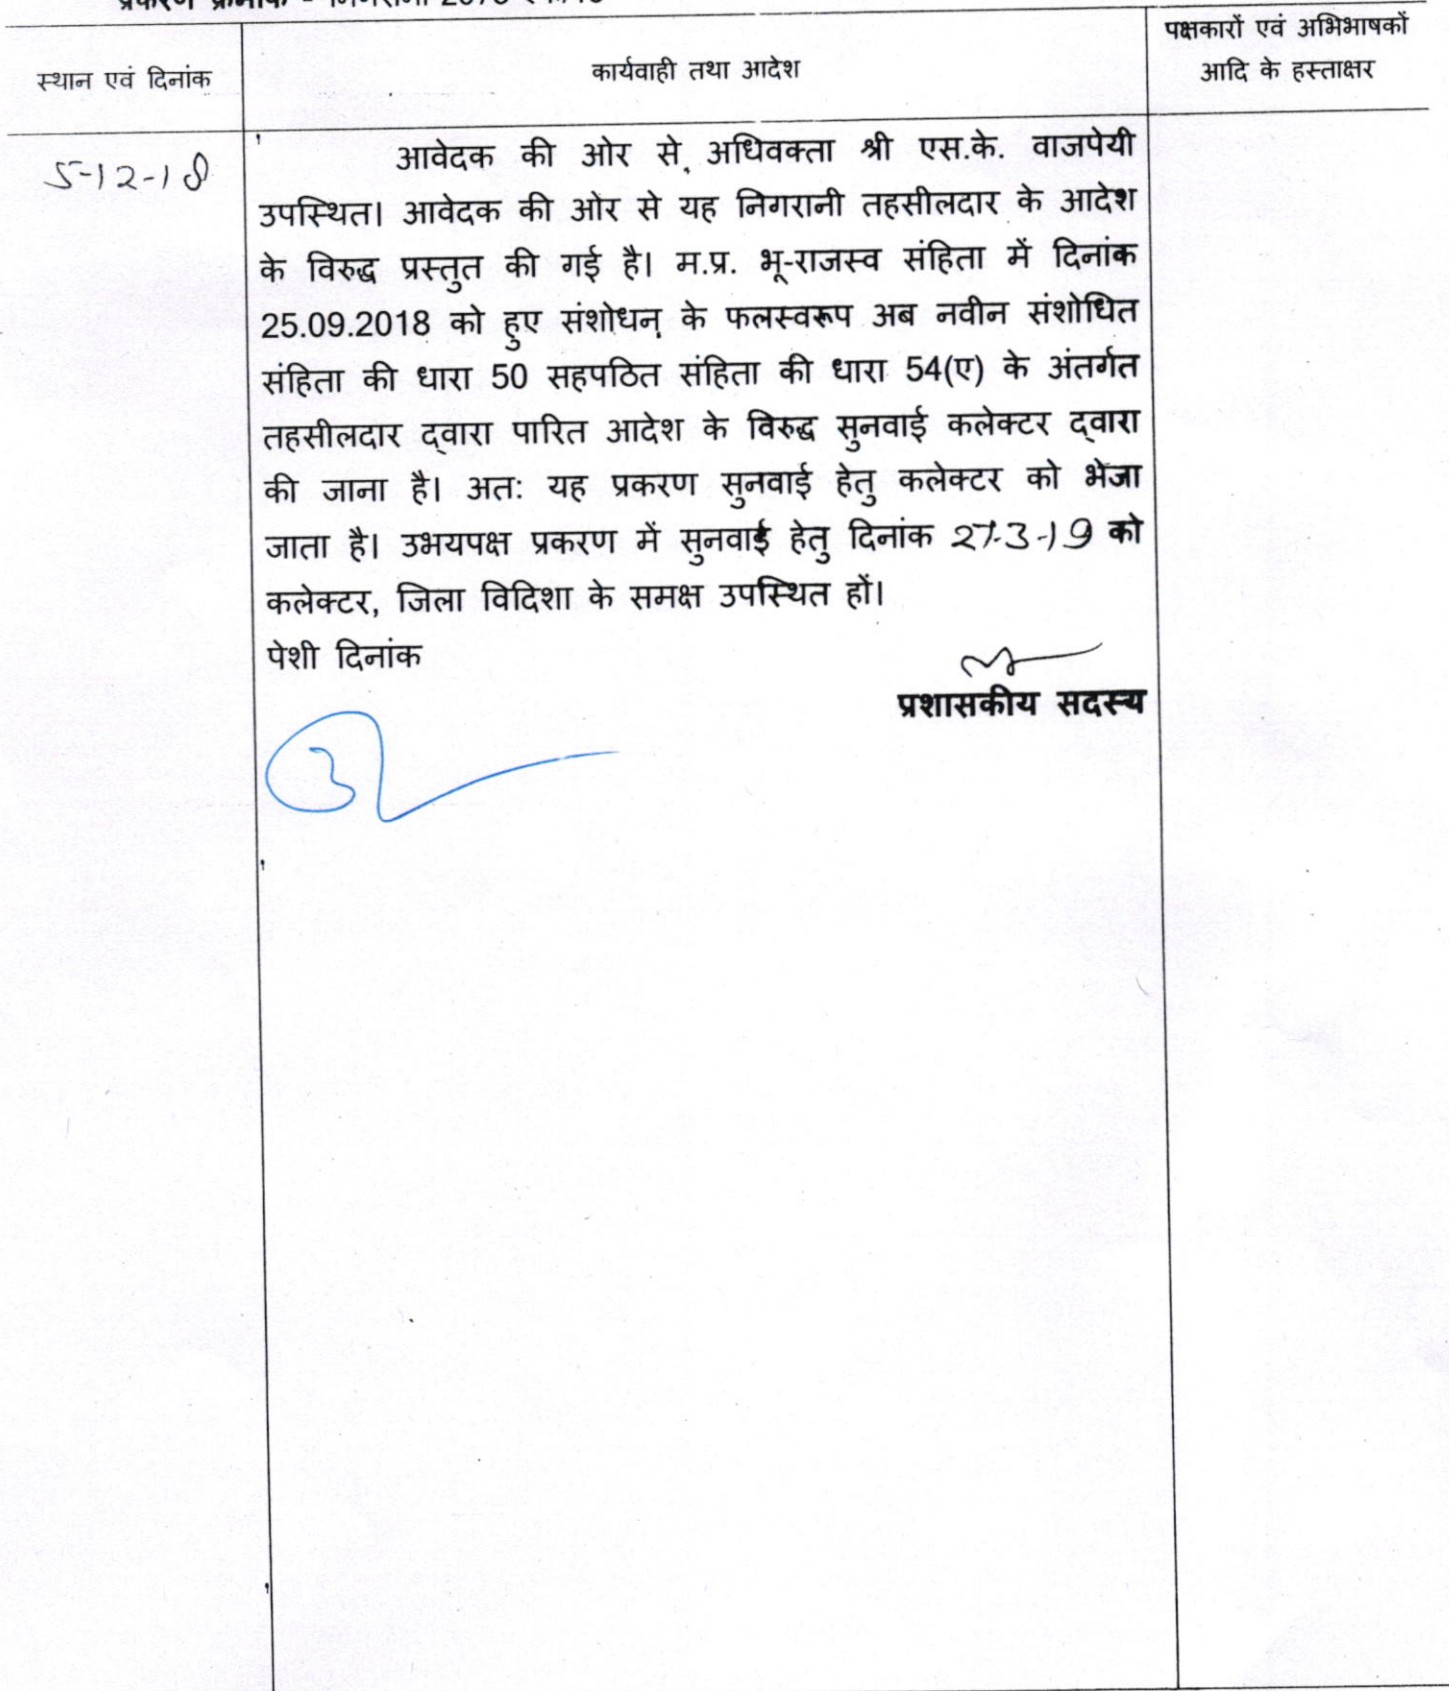 पक्षकारों एवं अभिभाषकों
स्थान एवं दिनांक कार्यवाही तथा आदेश आदि के हस्ताक्षर
5-12-18
आवेदक की ओर से अधिवक्ता श्री एस.के. वाजपेयी
उपस्थित। आवेदक की ओर से यह निगरानी तहसीलदार के आदेश
के विरुद्ध प्रस्तुत की गई है। म.प्र. भू-राजस्व संहिता में दिनांक
25.09.2018 को हुए संशोधन के फलस्वरूप अब नवीन संशोधित
संहिता की धारा 50 सहपठित संहिता की धारा 54(ए) के अंतर्गत
तहसीलदार द्वारा पारित आदेश के विरुद्ध सुनवाई कलेक्टर द्वारा
की जाना है। अत: यह प्रकरण सुनवाई हेतु कलेक्टर को भेजा
जाता है। उभयपक्ष प्रकरण में सुनवाई हेतु दिनांक 27-3-19 को
कलेक्टर, जिला विदिशा के समक्ष उपस्थित हों।
पेशी दिनांक
प्रशासकीय सदस्य